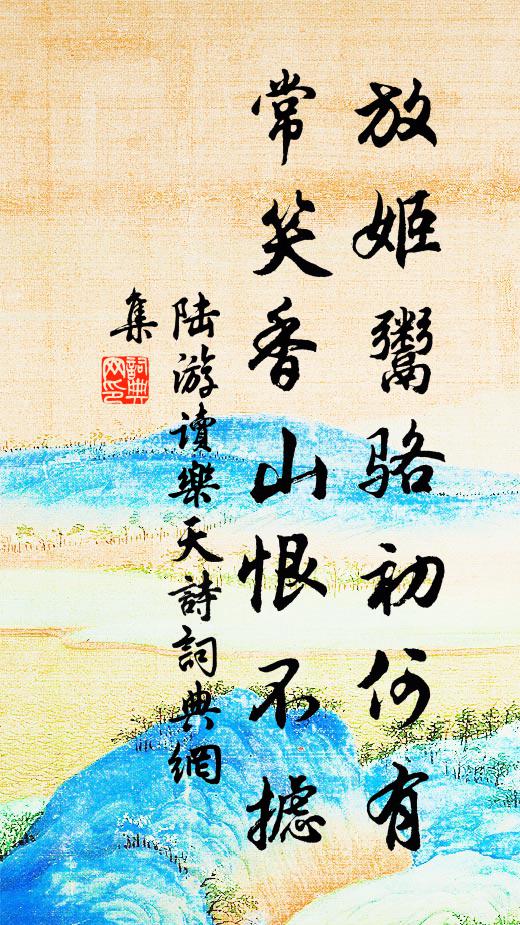 放姬鬻骆初何有
常笑香山恨不摅
陆游讀樂天詩詞典網
集
詞典网印